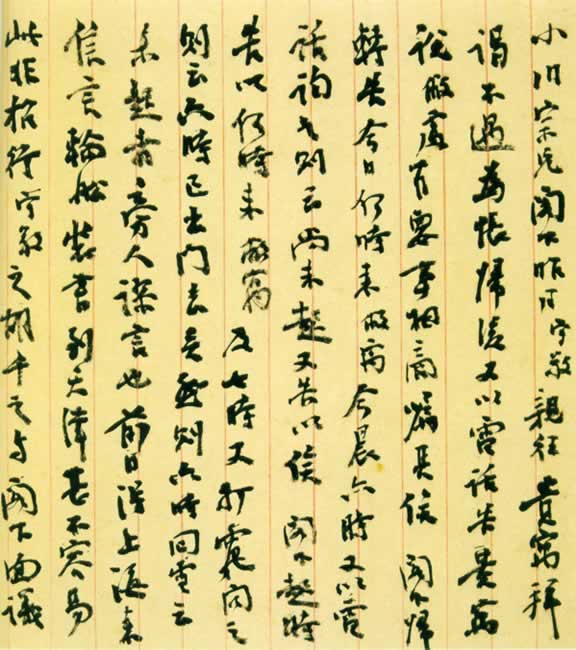 小川宗兄閣下昨日守敬親往 貴寓拜
謁不遇為悵歸後又以電話告貴寓
説敝處有要事相商囑其候 閣下歸
轉告今日何時来敝寓今晨六時又以電
話詢之則云尚未起又告以候 閣下起時
告以何時来敝寓 及七時又打電問之
則云六時已出門去矣然則六時回電云
未起者旁人言也前日得上海来
信言輪船装書到天津甚不容易
此非行守敬之与閣下面議